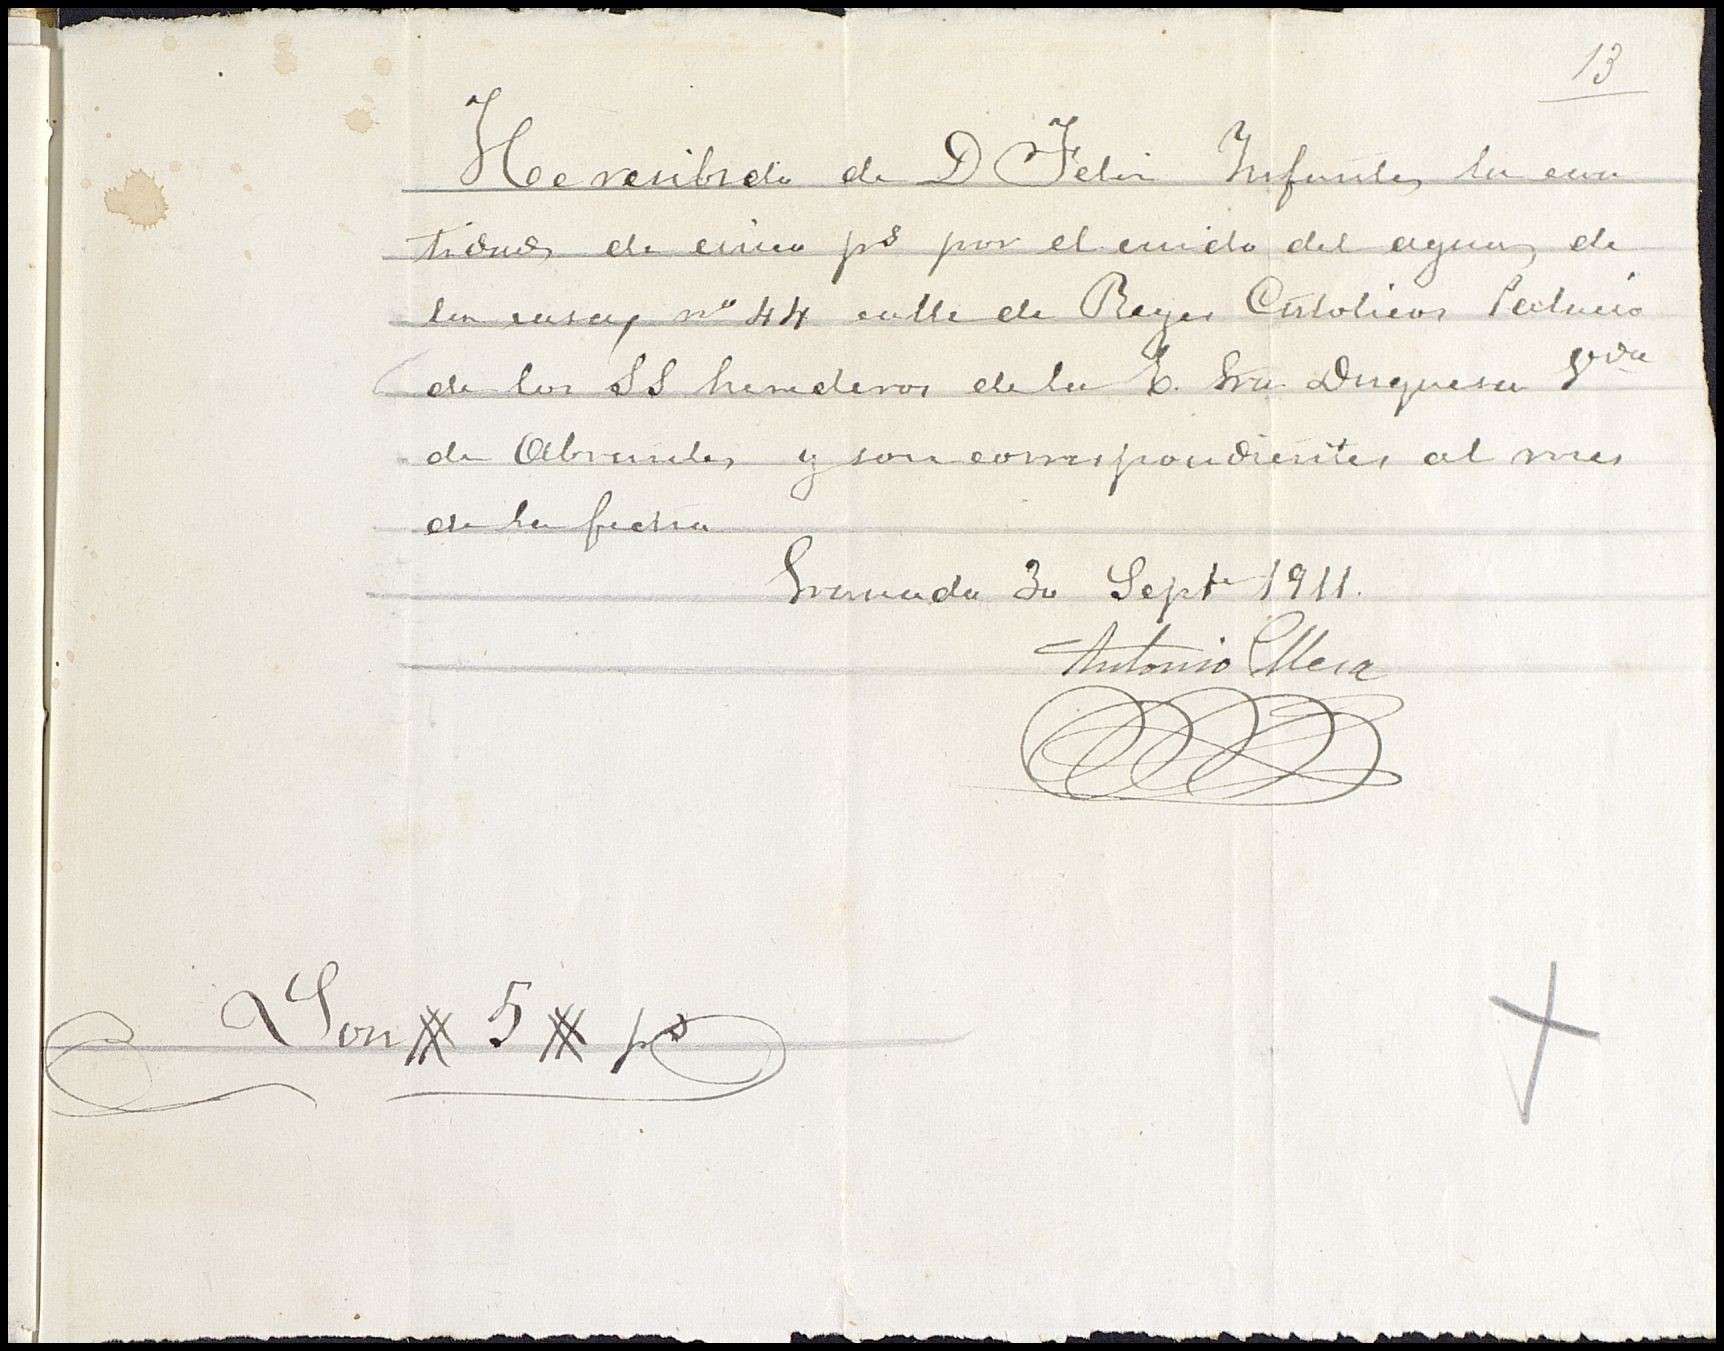 13
He resibido de D Felix Infantes la can
tidad de cinco ps por el cuido del agua de
la casa, nº 44 calle de Reyes Catolicos Palacio
de los SS herederos de la E. Sra Duquesa Vda
de Abrantes y son correspondientes al mes
de la fecha
Granada 30 Sept 1911.
Antonio Mesa
Son # 5 # ps